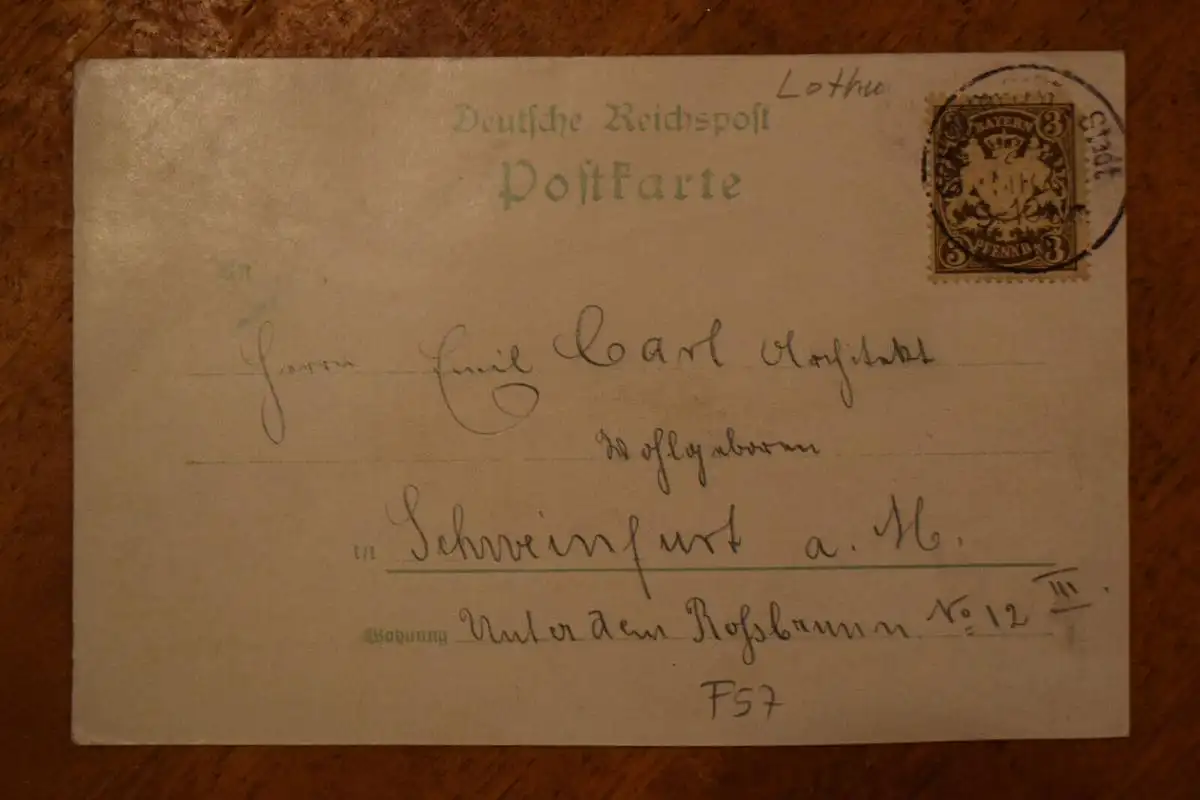 Lothu
Deutsche Reichspost
Postkarte
BAYERN
3 3
PFENNIG
3 3
Stadt
An
Herrn Emil Carl Architekt
Wohlgeboren
in Schweinfurt a. M.
Wohnung Unter dem Rossbrunn No 12 III.
F57